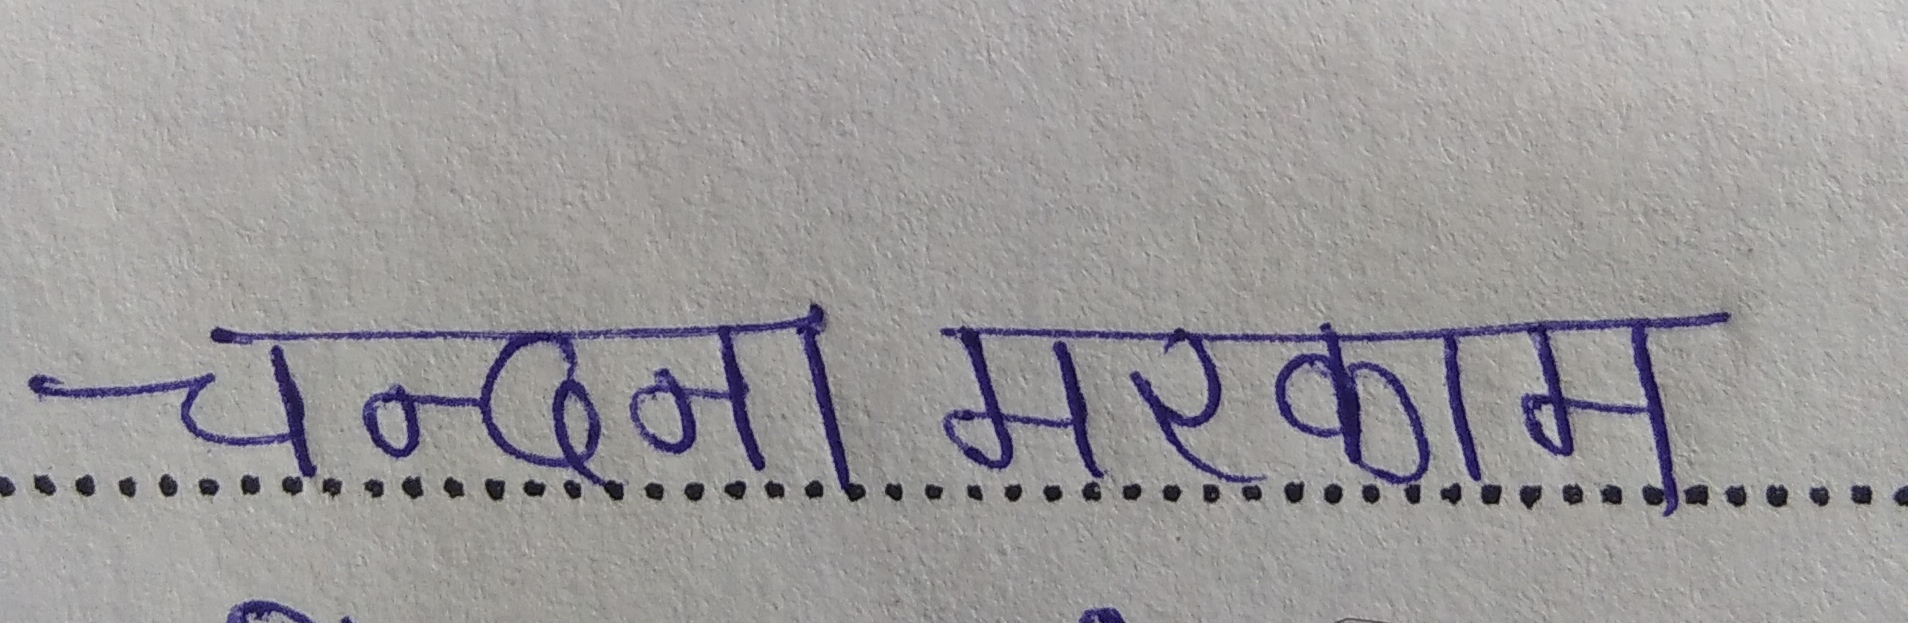 चन्दना मरकाम